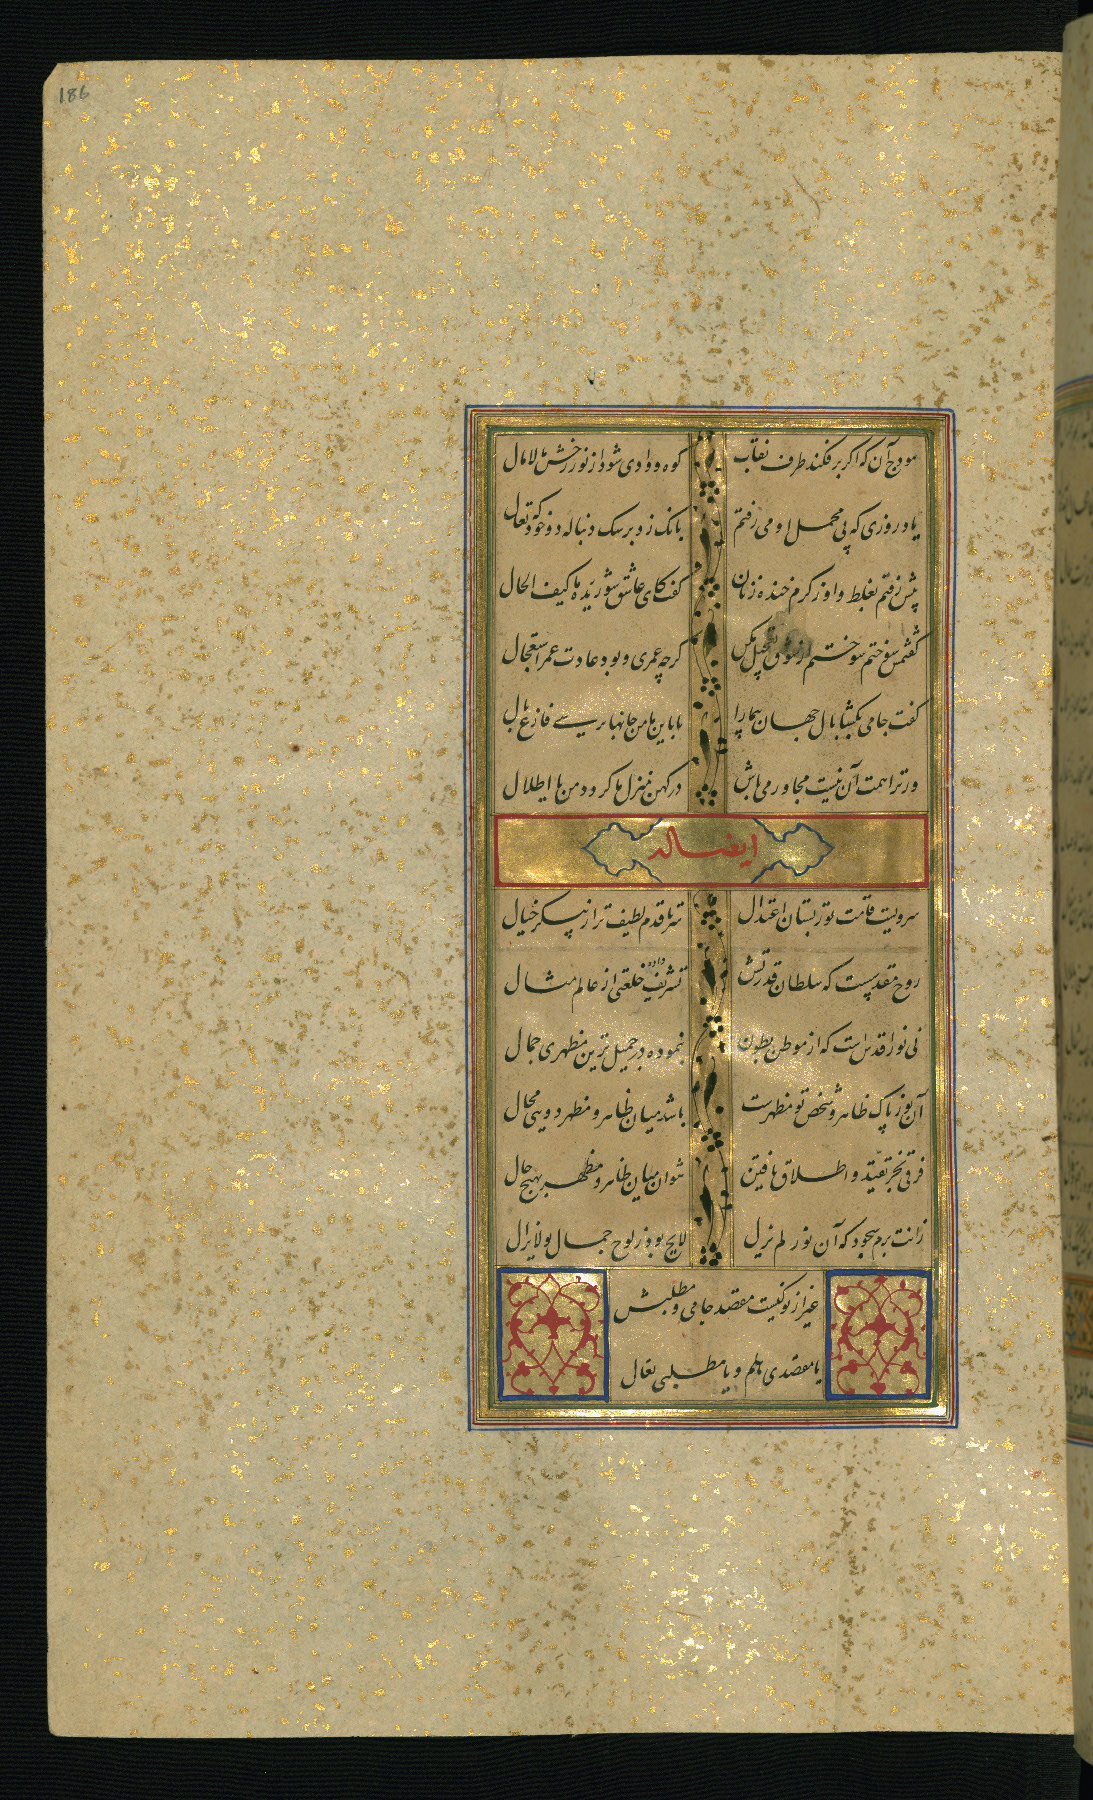 186
هودج آن که اگر برفکند طرف نقاب
کوه و وادی شود از نور رخش مالامال
یاد روزی که پی محمل او می رفتم
بانک زد بر سک دنباله دو خود که تعال
پیش رفتم بغلط واو ز کرم خنده زنان
گفت کای عاشق شوریده ما کیف الحال
گفتمش سوختم سوختم از شوق
کرچه عمری و بود عادت عمر استعجال
گفت جامی بکشا بال جهان پیما را
بابا این من
ور ترا همت آن نیست مجاور می باش
در کهن منزل ما کرد دمن یا اطلال
ایضا له
سرویست قامت تو ز بستان اعتدال
سر تا قدم لطیف تر از پیکر خیال
روح مقدسیست که سلطان قدرتش
تشریف داده خلعتی از عالم مثال
نی نور اقدس است که از موطن بطون
بنموده در جمیل ترین مظهری جمال
آن نور پاک ظاهر و شخص تو مظهرست
باشد میان ظاهر و مظهر دویی محال
فرقی بجز تقید و اطلاق یافتن
نتوان میان ظاهر و مظهر بهیچ حال
زانت برم سجود که آن نور لم یزل
لایح بود ز لوح جمال تو لایزال
غیر از تو نیست مقصد جامی و مطلبش
یا مقصدی هلم و یا مطلبی تعال